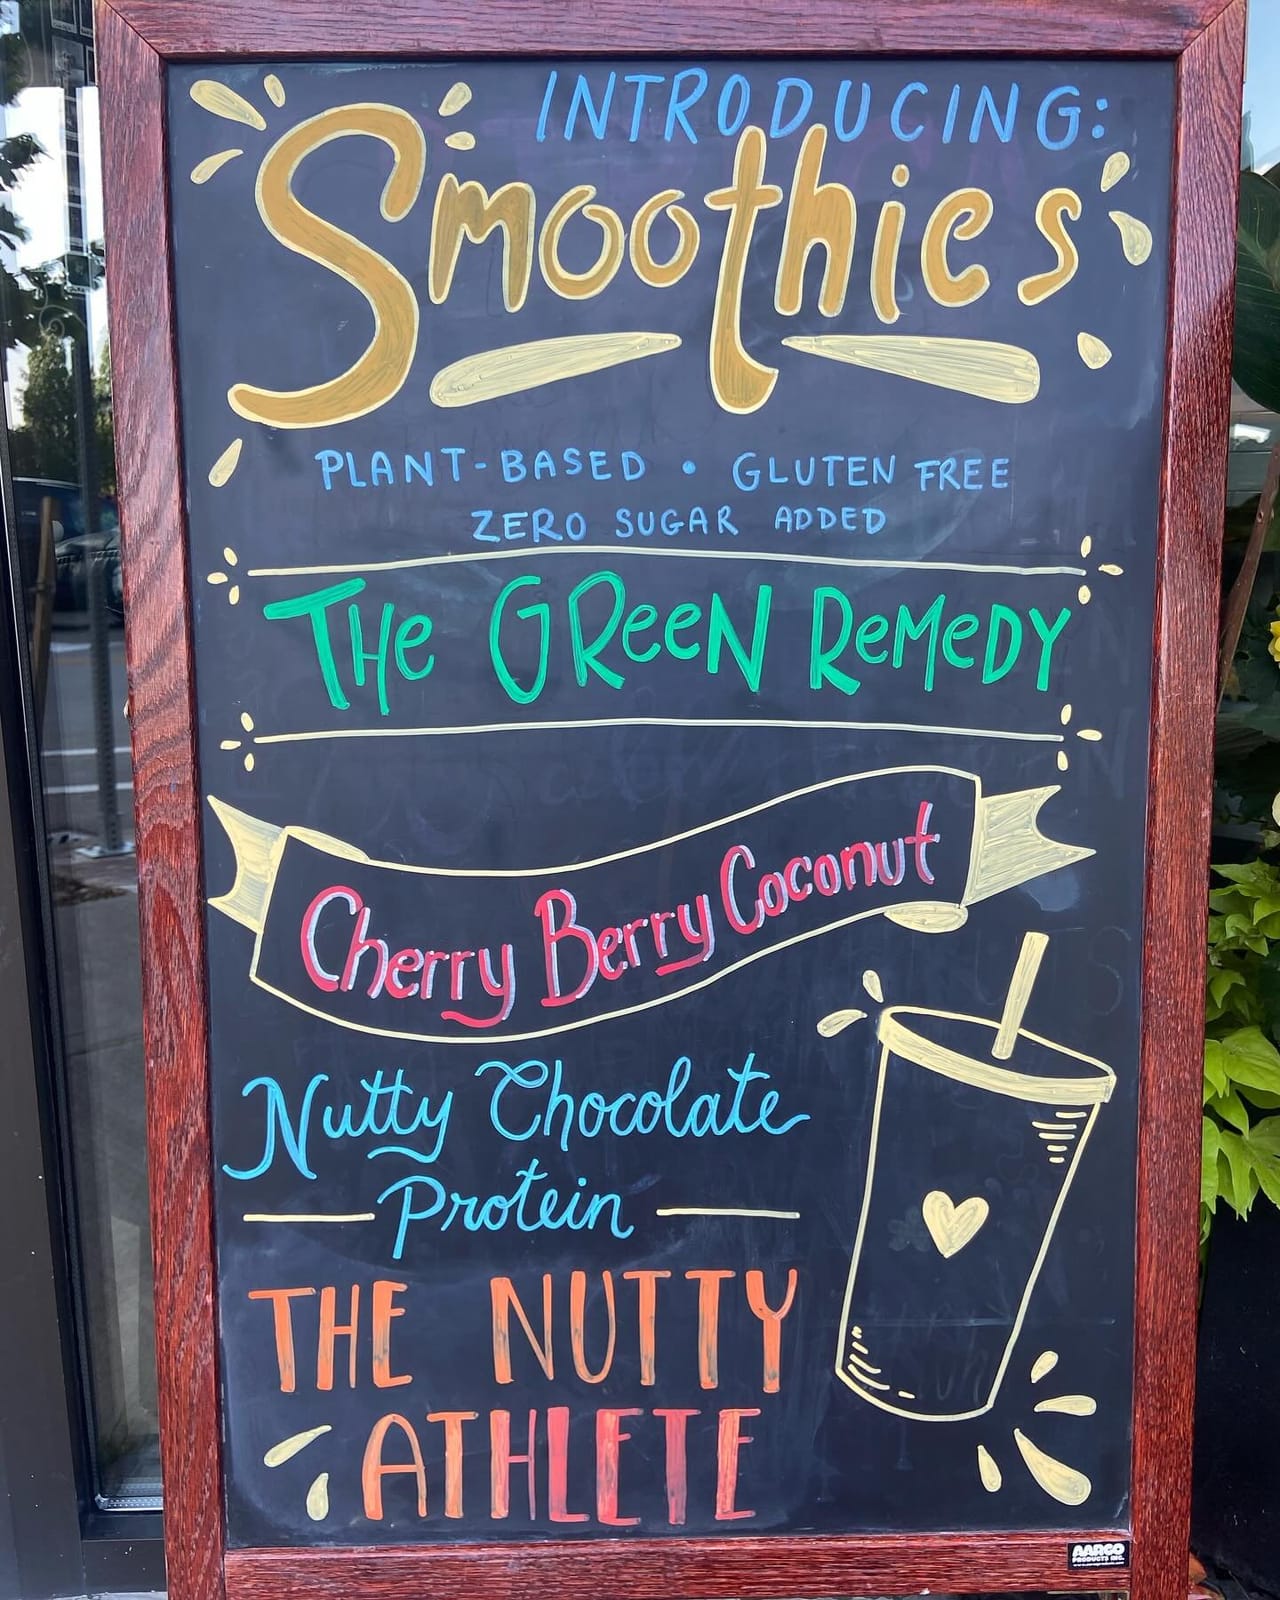 INTRODUCING:
Smoothies
PLANT-BASED • GLUTEN FREE
ZERO SUGAR ADDED
THE GREEN REMEDY
Cherry Berry Coconut
Nutty Chocolate
Protein
THE NUTTY
ATHLETE
AARCO
PRODUCTS INC.